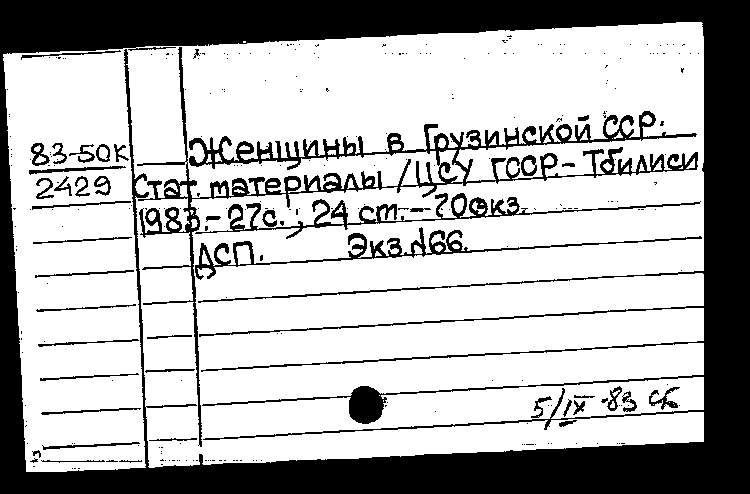 83-50К
2429
Женщины в Грузинской ССР:
Стат. материалы /ЦСУ ГССР.- Тбилиси,
1983.- 27с.; 24 см.- 70экз.
ДСП. Экз.№66.
5/IX -83